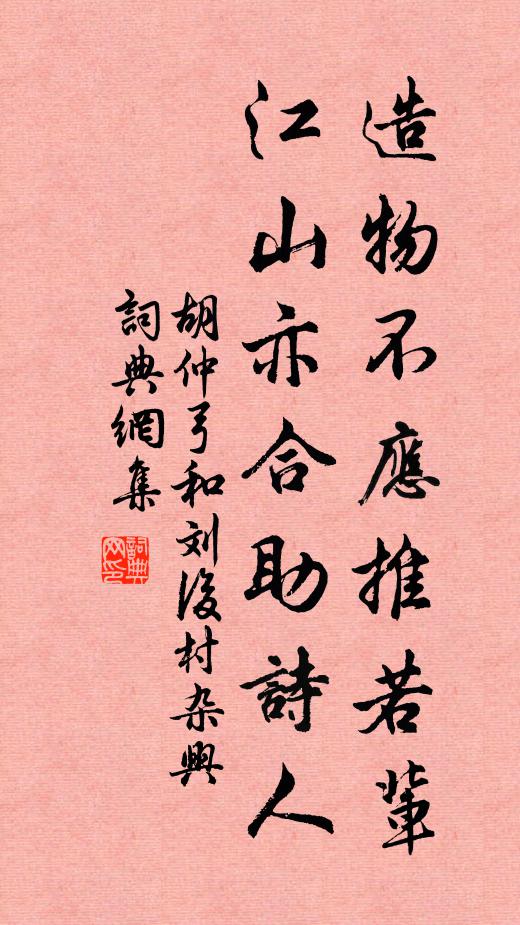 造物不應推若輩
江山亦合助詩人
胡仲弓和刘後村杂興
詞典網集
詞典网印